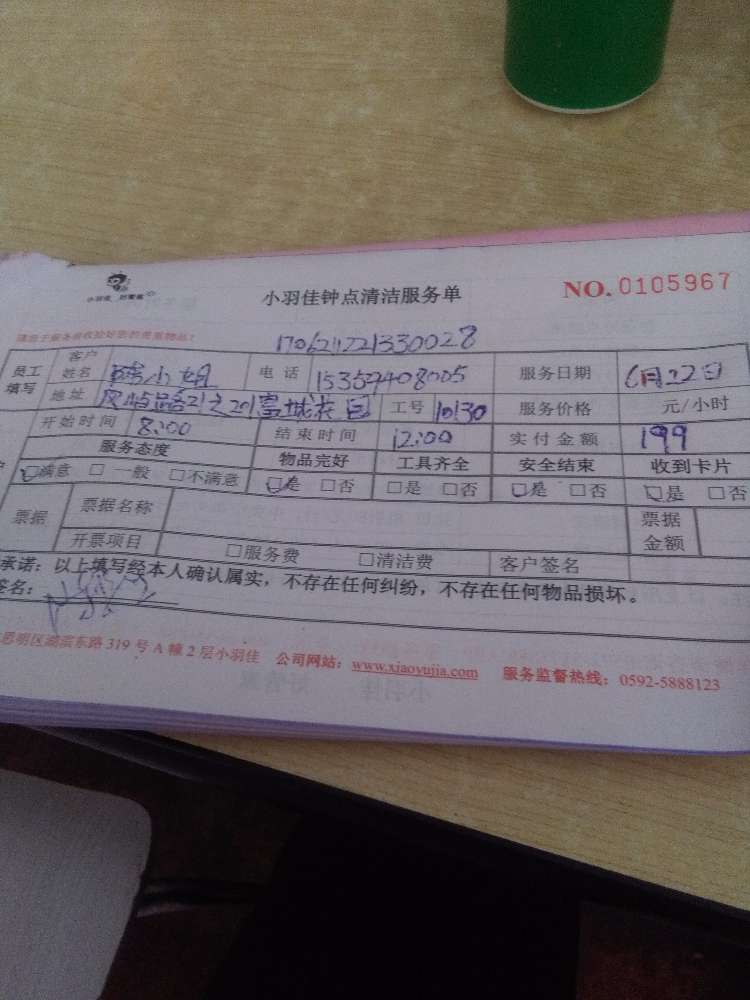 小羽佳 好管家
小羽佳钟点清洁服务单
NO. 0105967
请您于服务前收拾好您的贵重物品!
170621221330028
员工填写 客户姓名 小姐 电话 15357408005 服务日期 6月22日
地址 21之201富城花园 工号 10130 服务价格 元/小时
开始时间 8:00 结束时间 12:00 实付金额 199
服务态度 物品完好 工具齐全 安全结束 收到卡片
☑满意 □一般 □不满意 ☑是 □否 □是 □否 ☑是 □否 ☑是 □否
票据 票据名称 票据金额
开票项目 □服务费 □清洁费 客户签名
承诺:以上填写经本人确认属实,不存在任何纠纷,不存在任何物品损坏。
签名:
思明区湖滨东路 319 号 A 幢 2 层小羽佳 公司网站:www.xiaoyujia.com 服务监督热线:0592-5888123